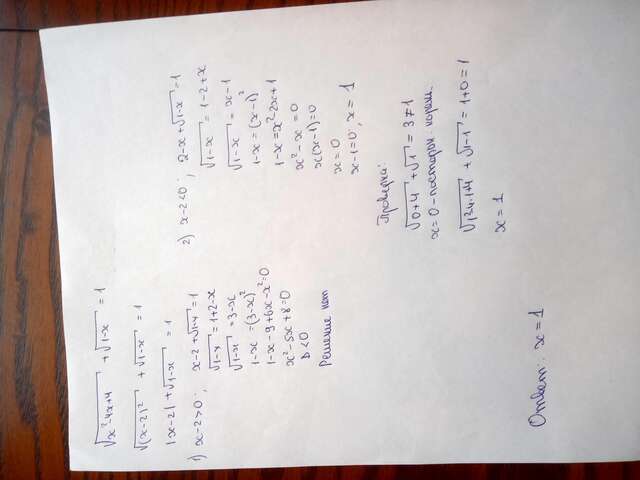 √x²4x+4 + √1-x = 1
√(x-2)² + √1-x = 1
|x-2| + √1-x = 1
1) x-2>0; x-2+√1-x=1
√1-x = 1+2-x
√1-x = 3-x
1-x = (3-x)²
1-x-9+6x-x²=0
x²-5x+8=0
D<0
Решение нет
2) x-2<0; 2-x+√1-x=1
√1-x = 1-2+x
√1-x = x-1
1-x = (x-1)²
1-x = x²2x+1
x²-x=0
x(x-1)=0
x=0
x-1=0; x=1
Проверка:
√0+4 + √1 = 3≠1
x=0-посторон. корень.
√1²4·1+4 + √1-1 = 1+0=1
x=1
Ответ: x=1